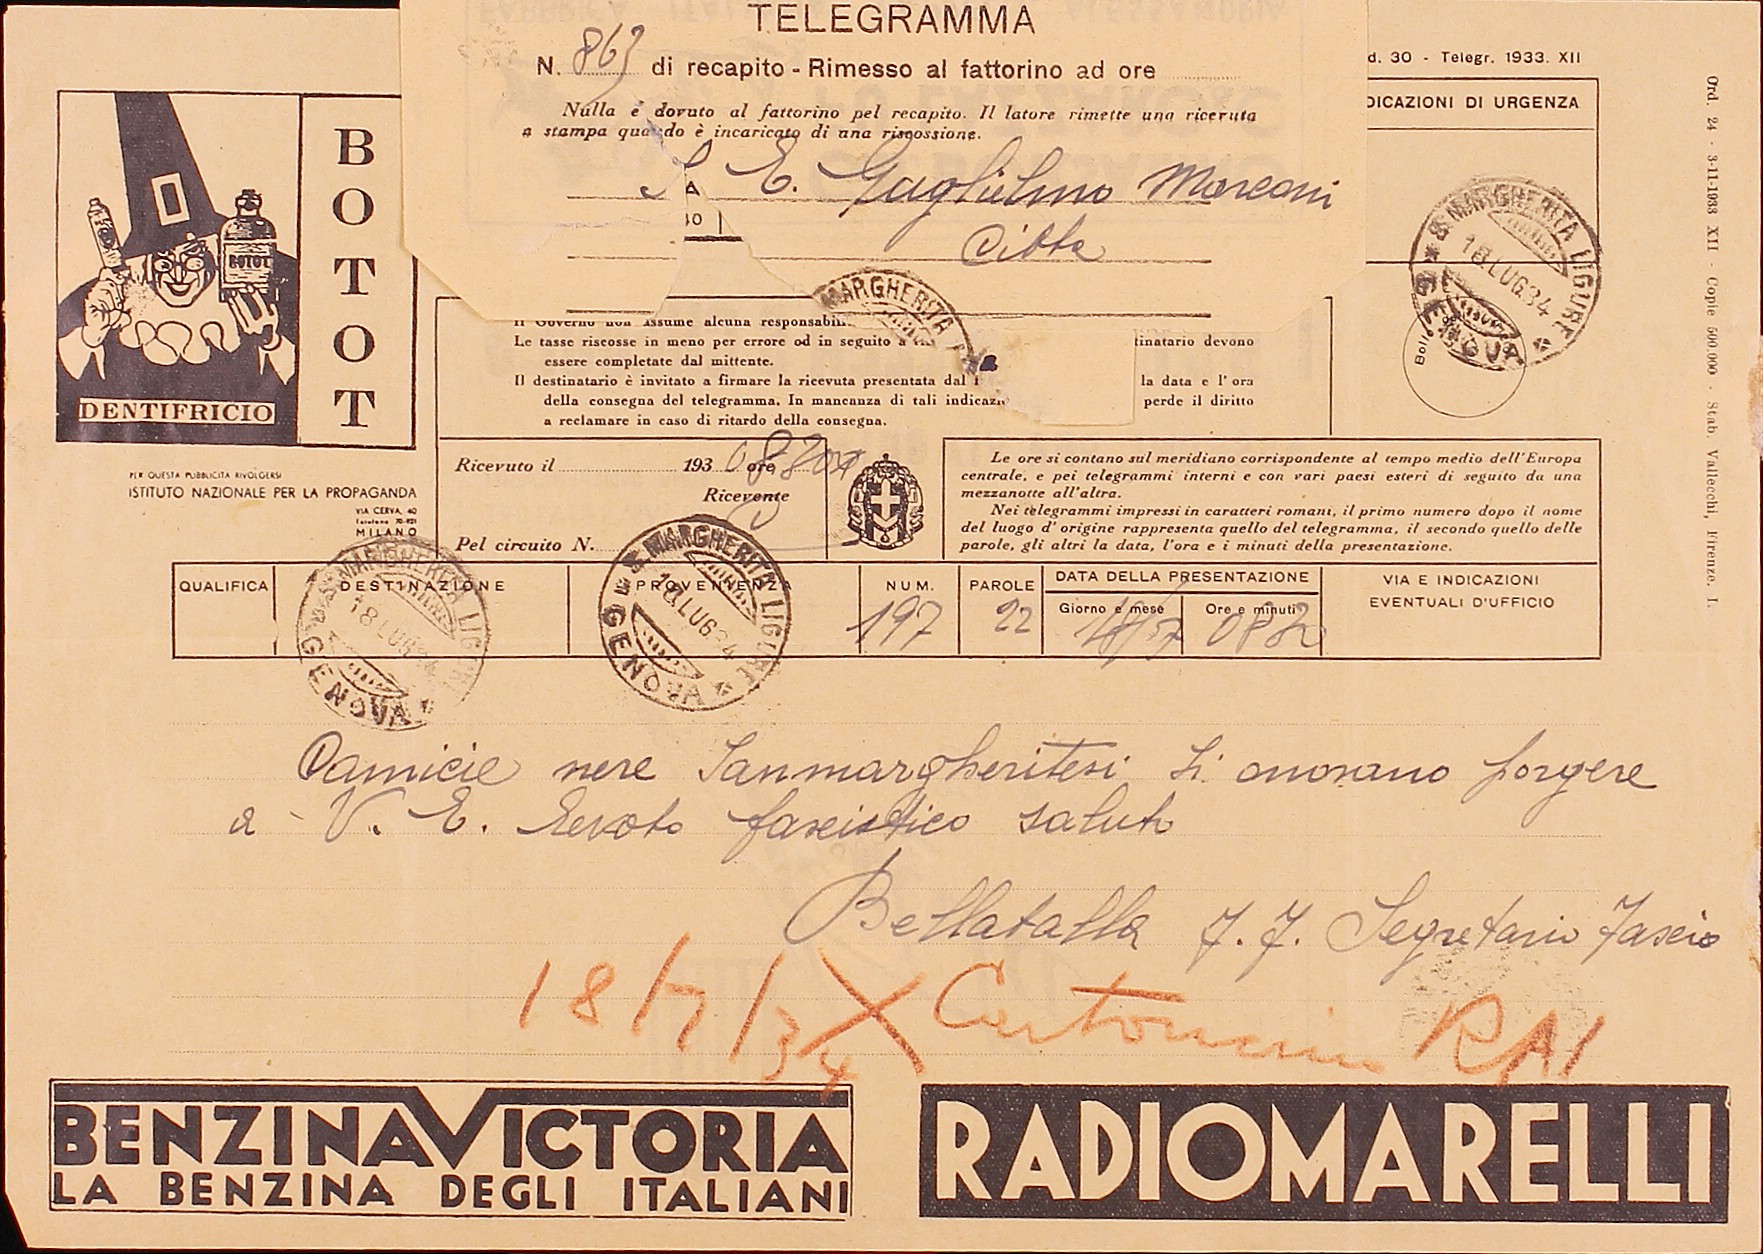 TELEGRAMMA
N. 863 di recapito - Rimesso al fattorino ad ore
Nulla è dovuto al fattorino pel recapito. Il latore rimette una ricevuta
a stampa quando è incaricato di una riscossione.
S. E. Guglielmo Marconi
Città
d. 30 - Telegr. 1933. XII
DICAZIONI DI URGENZA
Ord. 24 - 3-11-1933 XII - Copie 500.000 - Stab. Vallecchi, Firenze. I.
BOTOT
BOTOT
DENTIFRICIO
PER QUESTA PUBBLICITA RIVOLGERSI
ISTITUTO NAZIONALE PER LA PROPAGANDA
VIA CERVA, 40
MILANO
S. MARGHERITA LIGURE
18.LUG.34
GENOVA
Bollo
MARGHERITA
Il Governo non assume alcuna responsabil
Le tasse riscosse in meno per errore od in seguito a tinatario devono
essere completate dal mittente.
Il destinatario è invitato a firmare la ricevuta presentata dal la data e l'ora
della consegna del telegramma. In mancanza di tali indicazi perde il diritto
a reclamare in caso di ritardo della consegna.
Ricevuto il 193 ore
Ricevente
Pel circuito N.
Le ore si contano sul meridiano corrispondente al tempo medio dell'Europa
centrale, e pei telegrammi interni e con vari paesi esteri di seguito da una
mezzanotte all'altra.
Nei telegrammi impressi in caratteri romani, il primo numero dopo il nome
del luogo d'origine rappresenta quello del telegramma, il secondo quello delle
parole, gli altri la data, l'ora e i minuti della presentazione.
QUALIFICA DESTINAZIONE PROVENIENZA NUM. PAROLE DATA DELLA PRESENTAZIONE VIA E INDICAZIONI
EVENTUALI D'UFFICIO
Giorno e mese Ore e minuti
197 22 18/7 0820
S. MARGHERITA LIGURE
18 LUG 34
GENOVA
S. MARGHERITA LIGURE
18.LUG.34
GENOVA
Camicie nere Sanmargheritesi si onorano porgere
a V. E. devoto fascistico saluto
Bellatalla F. F. Segretario Fascio
18/7/34 X RAI
BENZINA VICTORIA
LA BENZINA DEGLI ITALIANI
RADIOMARELLI